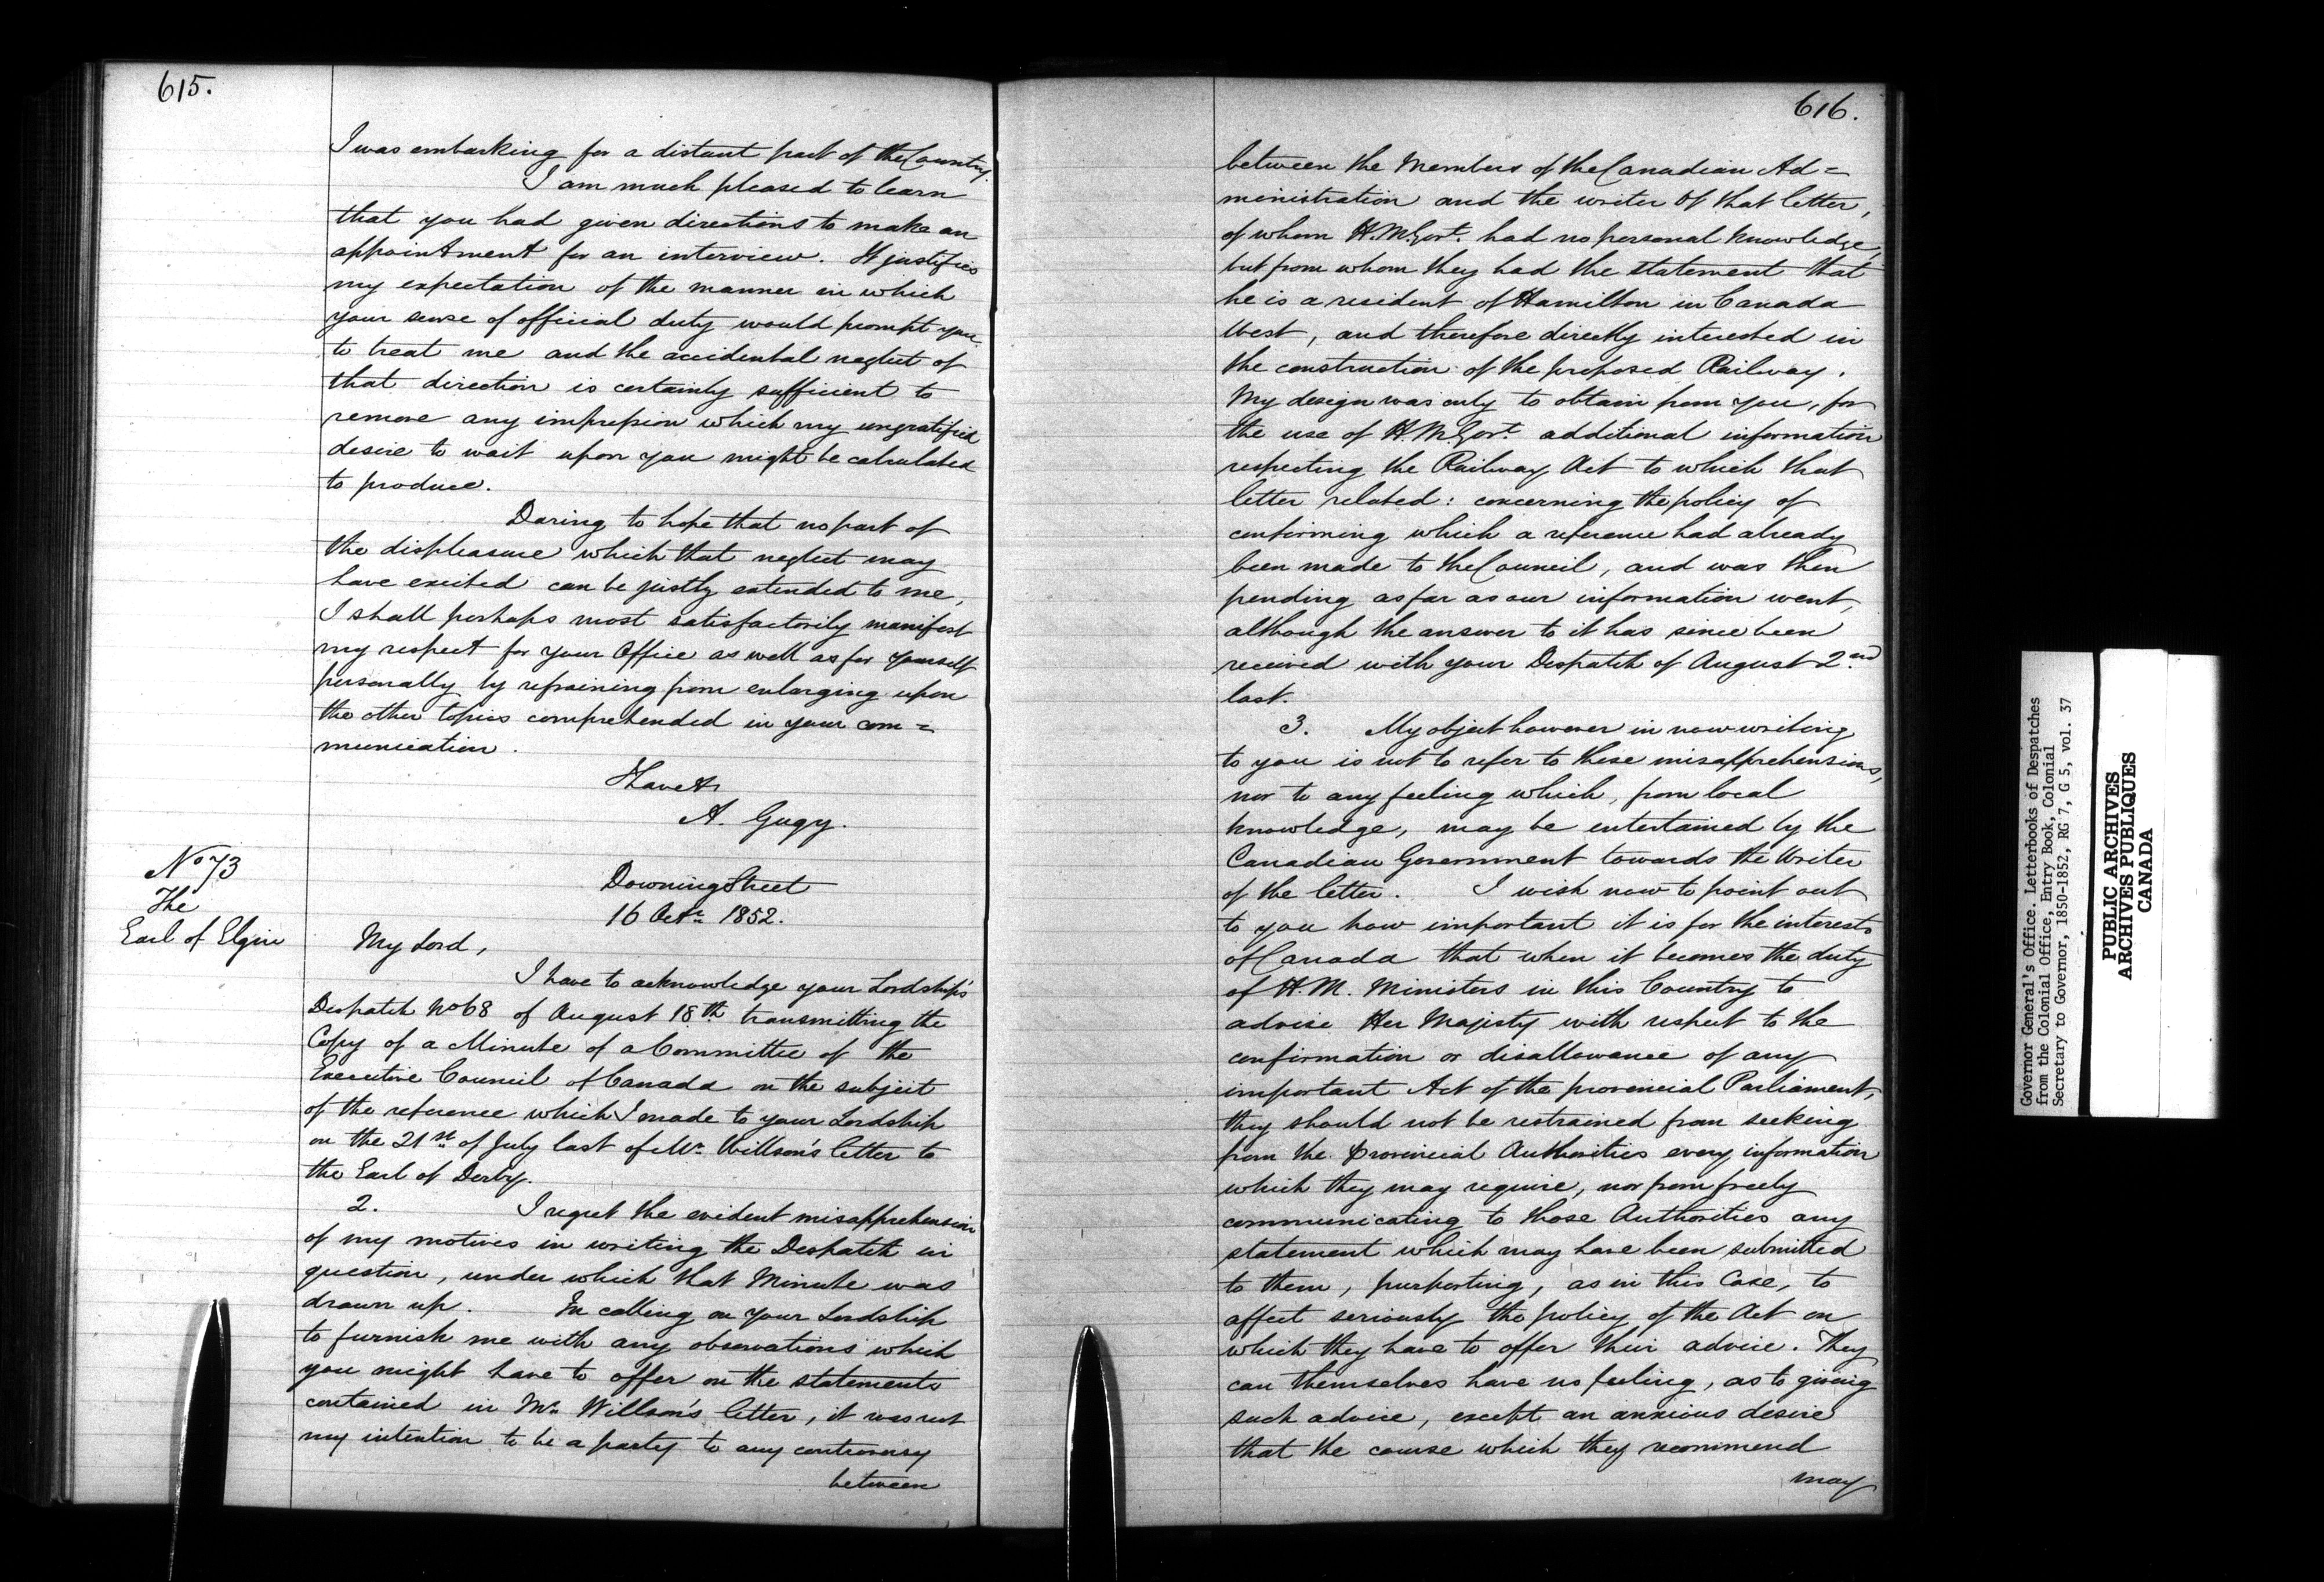 615.
I was embarking for a distant part of the Country.
I am much pleased to learn
that you had given directions to make an
appointment for an interview. It justifies
my expectation of the manner in which
your sense of official duty would prompt you
to treat me and the accidental neglect of
that direction is certainly sufficient to
remove any impression which my ungratified
desire to wait upon you might be calculated
to produce.
Daring to hope that no part of
the displeasure which that neglect may
have excited can be justly extended to me,
I shall perhaps most satisfactorily manifest
my respect for your Office as well as for yourself
personally by refraining from enlarging upon
the other topics comprehended in your com=
munication.
I have &c
A. Gugy.
No 73
The
Earl of Elgin
Downing Street
16 Octr. 1852.
My Lord,
I have to acknowledge your Lordship's
Despatch No 68 of August 18th transmitting the
Copy of a Minute of a Committee of the
Executive Council of Canada on the subject
of the reference which I made to your Lordship
on the 21st of July last of Mr. Willson's letter to
the Earl of Derby.
2. I regret the evident misapprehension
of my motives in writing the Despatch in
question, under which that Minute was
drawn up. In calling on your Lordship
to furnish me with any observations which
you might have to offer on the statements
contained in Mr. Willson's letter, it was not
my intention to be a party to any controversy
between
616.
between the Members of the Canadian Ad=
ministration and the writer of that letter,
of whom H.M. Govt. had no personal knowledge,
but from whom they had the statement that
he is a resident of Hamilton in Canada
West, and therefore directly interested in
the construction of the proposed Railway.
My design was only to obtain from you, for
the use of H.M. Govt. additional information
respecting the Railway Act to which that
letter related: concerning the policy of
confirming which a reference had already
been made to the Council, and was then
pending as far as our information went,
although the answer to it has since been
received with your Despatch of August 2nd
last.
3. My object however in now writing
to you is not to refer to these misapprehensions,
nor to any feeling which, from local
knowledge, may be entertained by the
Canadian Government towards the Writer
of the letter. I wish now to point out
to you how important it is for the interests
of Canada that when it becomes the duty
of H.M. Ministers in this Country to
advise Her Majesty with respect to the
confirmation or disallowance of any
important Act of the provincial Parliament,
they should not be restrained from seeking
from the Provincial Authorities every information
which they may require, nor from freely
communicating to those Authorities any
statement which may have been submitted
to them, purporting, as in this Case, to
affect seriously the policy of the Act on
which they have to offer their advice. They
can themselves have no feeling, as to giving
such advice, except an anxious desire
that the course which they recommend
may
Governor General's Office. Letterbooks of Despatches
from the Colonial Office, Entry Book, Colonial
Secretary to Governor, 1850-1852, RG 7, G 5, vol. 37
PUBLIC ARCHIVES
ARCHIVES PUBLIQUES
CANADA